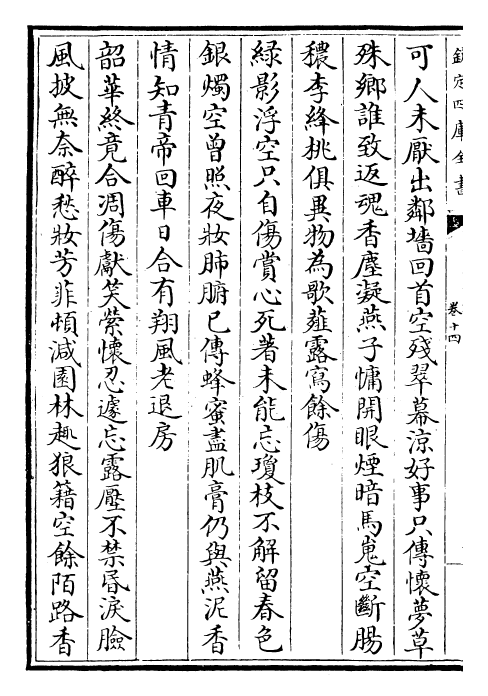 欽定四庫全書
卷十四
可人未厭出鄰墻回首空殘翠幕涼好事只傳懷夢草
殊鄉誰致返魂香塵凝燕子慵開眼煙暗馬嵬空斷腸
穠李絳桃俱異物為歌薤露寫餘傷
緑影浮空只自傷賞心死著未能忘瓊枝不解留春色
銀燭空曾照夜妝肺腑已傳蜂蜜盡肌膏仍與燕泥香
情知青帝回車日合有翔風老退房
韶華終竟合凋傷獻笑縈懷忍遽忘露壓不禁㫰淚臉
風披無奈醉愁妝芳菲頓減園林趣狼籍空餘陌路香